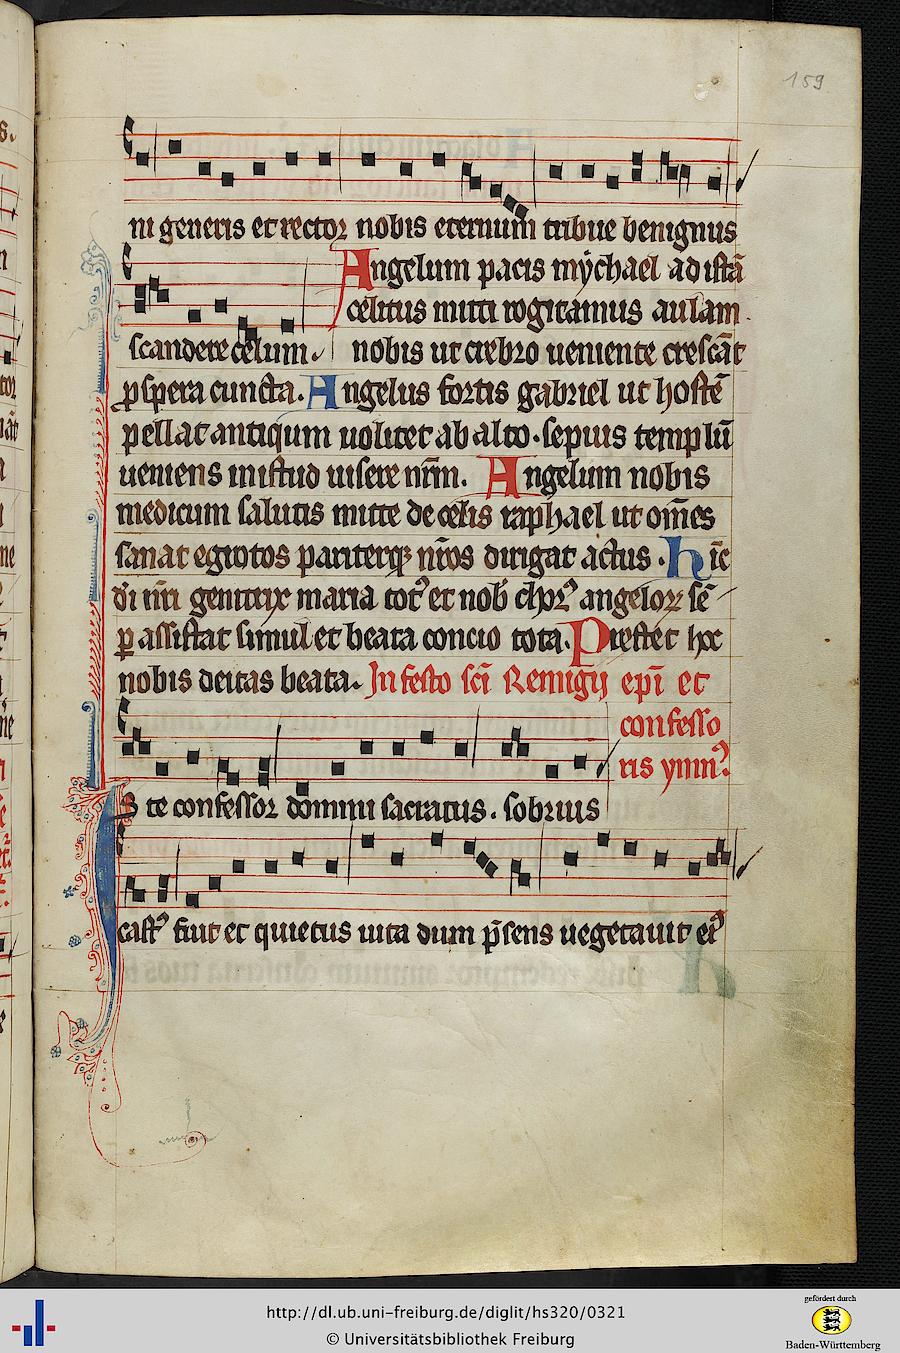 159
ni generis et rector nobis eternum tribue benignus
Angelum pacis mychael ad istā
celitus mitti rogitamus aulam.
scandere celum. nobis ut crebro ueniente crescāt
ꝓspera cuncta. Angelus fortis gabriel ut hostē
pellat antiqum uolitet ab alto. sepius templū
ueniens inistud uisere nr̄m. Angelum nobis
medicum salutis mitte de celis raphael ut om̄es
sanat egrotos pariterqꝫ nr̄os dirigat actus. hīc
di nr̄i genitrix maria
angeloꝝ sē
ꝑ assistat simul et beata concio tota. Prestet hoc
nobis deitas beata. In festo scī Remigij epī et
confesso
ris ymn⁹.
Iste confessor domini sacratus. sobrius
cast⁹ fuit et quietus uita dum p̄sens uegetauit ei⁹
http://dl.ub.uni-freiburg.de/diglit/hs320/0321
© Universitätsbibliothek Freiburg
gefördert durch
Baden-Württemberg